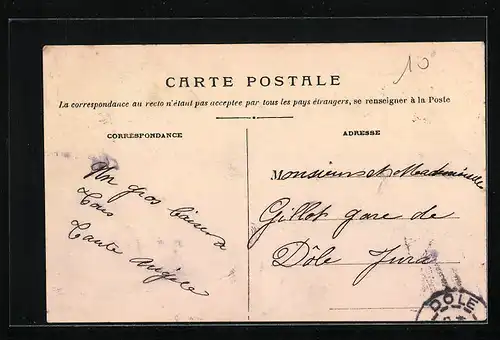 10
CARTE POSTALE
La correspondance au recto n'étant pas acceptée par tous les pays étrangers, se renseigner à la Poste
CORRESPONDANCE
Un gros baiser à
Tous
Tante Angèle
ADRESSE
Monsieur et Mademoiselle
Gillot gare de
Dôle Jura
DOLE